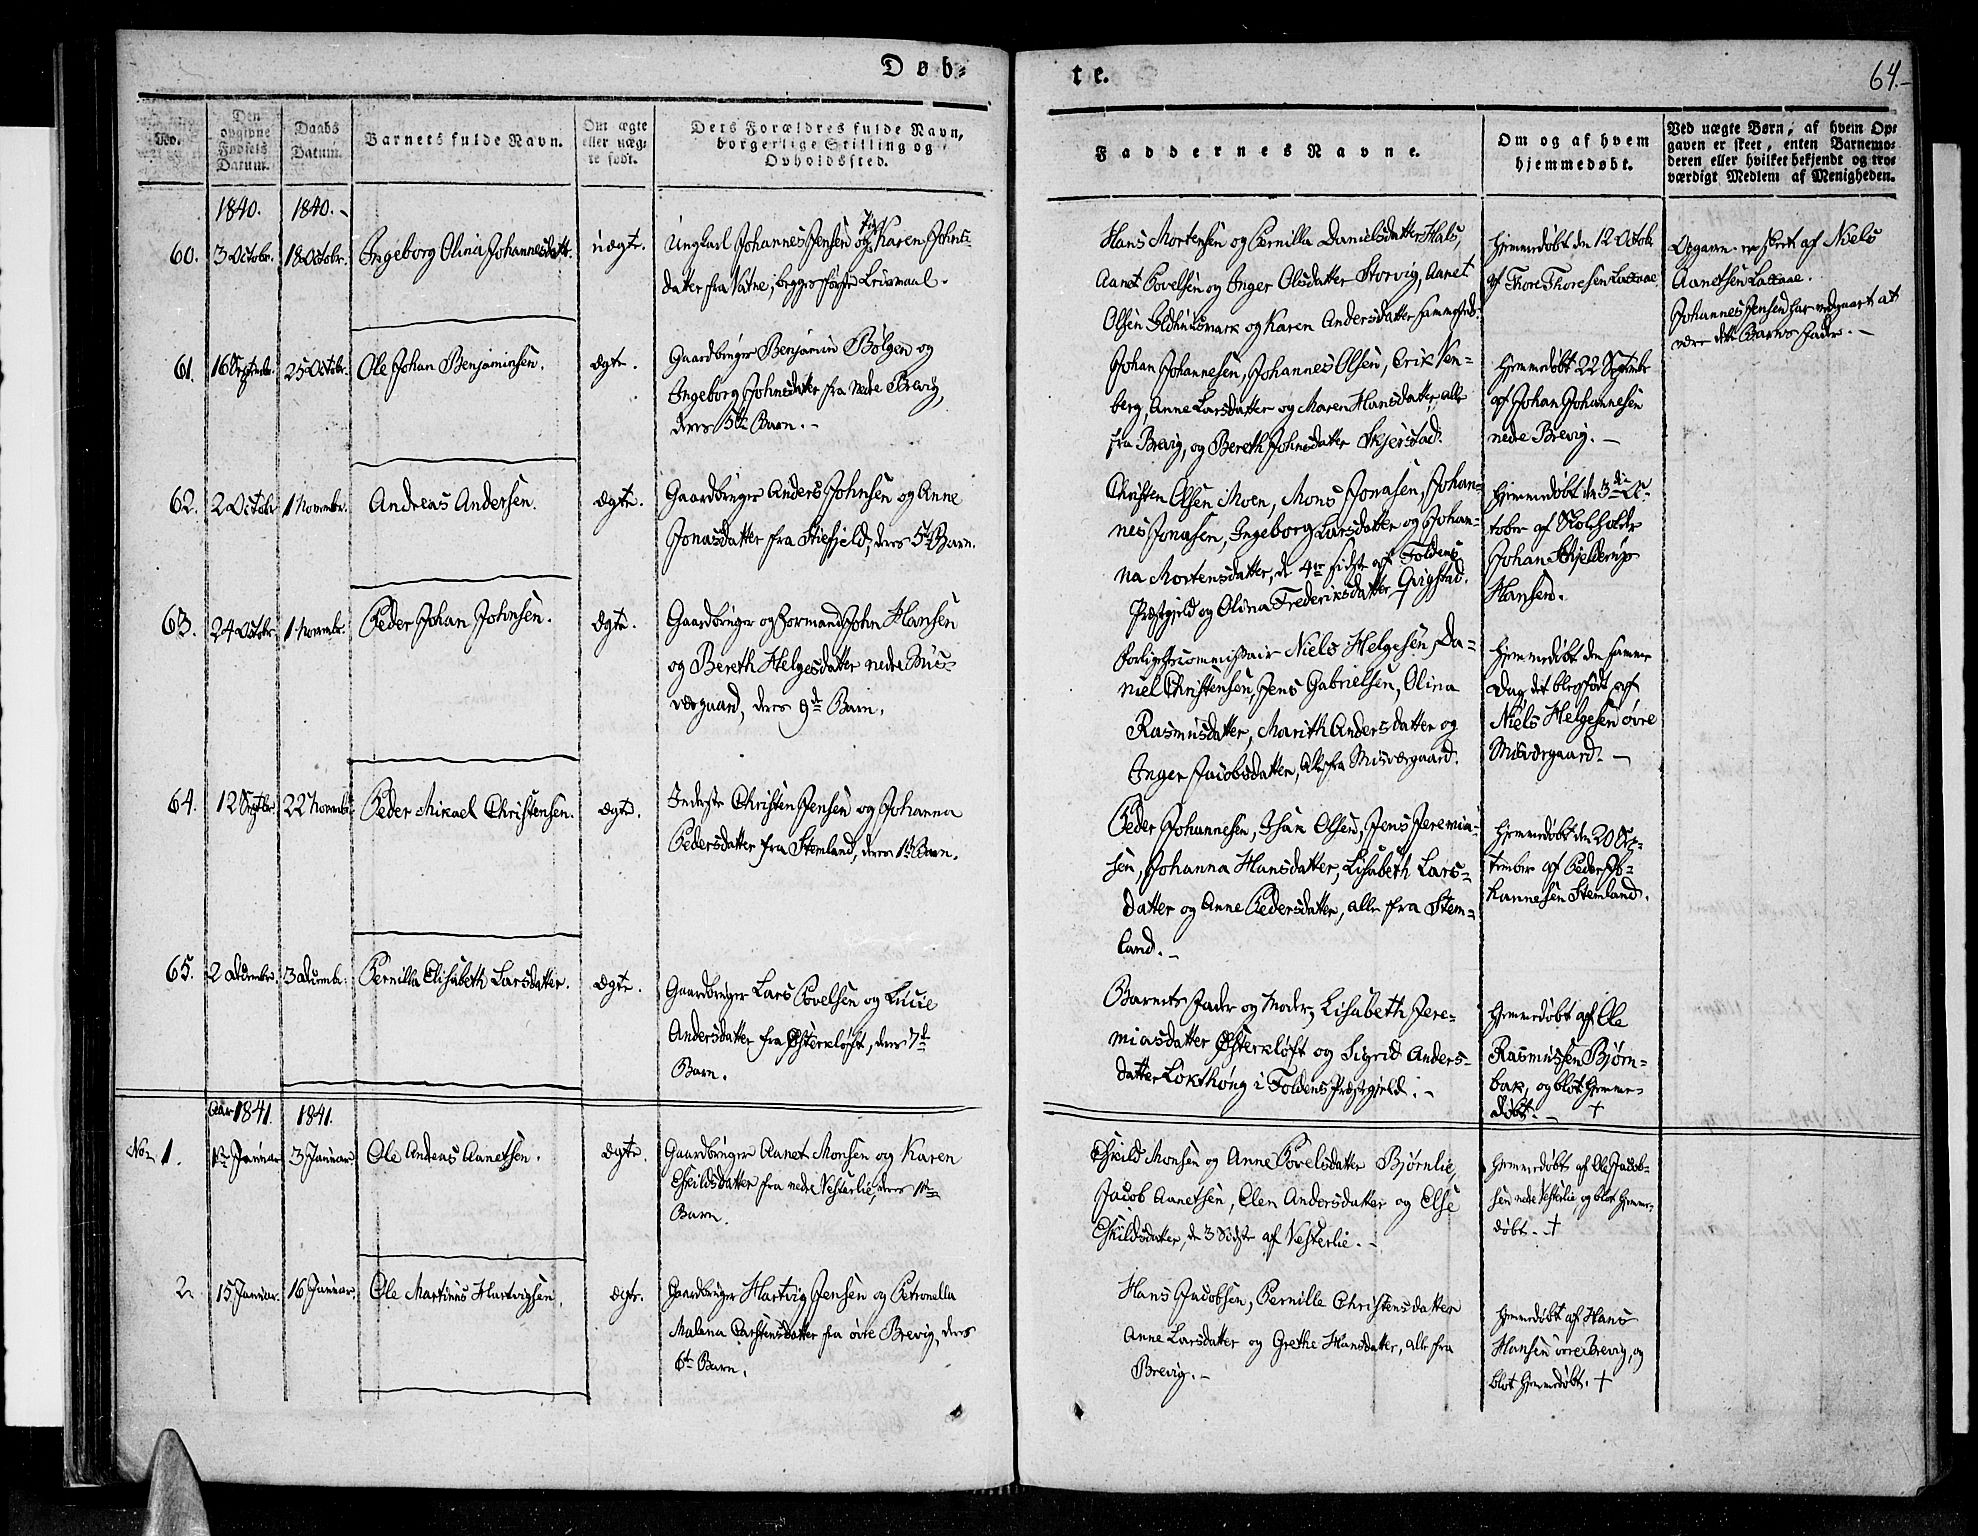 Døb-
te.
64.-
No.
Den
opgivne
Fødsels
Datum.
Daabs
Datum.
Barnets fulde Navn.
Om ægte
eller uæg-
te født.
Dets Forældres fulde Navn,
borgerlige Stilling og
Opholdssted.
Faddernes Navne.
Om og af hvem
hjemmedøbt.
Ved uægte Børn, af hvem Op-
gaven er skeet, enten Barnemo-
deren eller hvilket bekjendt og tro-
værdigt Medlem af Menigheden.
1840. 1840.-
60. 3 Octobr. 18 Octobr. Ingeborg Olina Johannesdatt. uægte.
Ungkarl Johannes Jensen og Pig. Karen Johns-
datter fra Vatne, begges første Leiermaal.
Hans Mortensen og Pernilla Danielsdatter Hals,
Aanet Povelsen og Inger Olsdatter Storvig, Aanet
Olsen Ildhuusmark og Karen Andersdatter sammesteds.
Hjemmedøbt den 12 Octobr.
af Thore Thoresen Laxaae.
Opgaven er skeet af Niels
Aanetsen Laxaae.
Johannes Jensen har vedgaaet at
være dette Barns Fader.-
61. 16 Septembr. 25 Octobr. Ole Johan Benjaminsen. ægte.
Gaardbruger Benjamin Bølgen og
Ingeborg Johnsdatter fra nedre Brevig,
deres 5te Barn.-
Johan Johannesen, Johannes Olsen, Erik Ven-
berg, Anne Larsdatter og Maren Hansdatter, alle
fra Brevig, og Bereth Johnsdatter Skjerstad.
Hjemmedøbt 22 Septembr
af Johan Johannesen
nedre Brevig.-
62. 2 Octobr 1 Novembr. Andreas Andersen. ægte.
Gaardbruger Anders Johnsen og Anne
Jonasdatter fra Stifjeld, deres 5te Barn.
Christen Olsen Moen, Mons Jonasen, Johan-
nes Jonasen, Ingeborg Larsdatter og Johan-
na Mortensdatter, de 4re sidste af Foldens
Præstgjeld og Olina Frederiksdatter Grigstad.
Hjemmedøbt den 3die Oc-
tober af Skoleholder
Johan Schjelderup
Hansen.
63. 24 Octobr. 1 Novembr. Peder Johan Johnsen. ægte.
Gaardbruger og Formand John Hansen
og Bereth Helgesdatter nedre Mis-
værgaard, deres 9de Barn.
Forligelsescommissair Niels Helgesen, Da-
niel Christensen, Jens Gabrielsen, Olina
Rasmusdatter, Marith Andersdatter og
Inger Jacobsdatter, alle fra Misværgaard.
Hjemmedøbt den samme
Dag det blev født af
Niels Helgesen øvre
Misværgaard.-
64. 12 Septbr. 22 Novembr. Peder Mikael Christensen. ægte.
Inderste Christen Jensen og Johanna
Pedersdatter fra Stemland, deres 1ste Barn.
Peder Johannesen, Isak Olsen, Jens Jeremia-
sen, Johanna Hansdatter, Lisabeth Lars-
datter og Anne Pedersdatter, alle fra Stem-
land.-
Hjemmedøbt den 20 Sep-
tember af Peder Jo-
hannesen Stemland.
65. 2 Decembr. 3 Decembr. Pernilla Elisabeth Larsdatter. ægte.
Gaardbruger Lars Povelsen og Lucie
Andersdatter fra Østerkløft, deres 7de
Barn.
Barnets Fader og Moder, Lisabeth Jere-
miasdatter Østerkløft og Sigrid Anders-
datter Lokthøug i Foldens Præstgjeld.-
Hjemmedøbt af Ole
Rasmussen Bjørn-
bak, og blot hjemme-
døbt.- +
Aar 1841. 1841.
No. 1. 1ste Januar 3 Januar Ole Andreas Aanetsen. ægte.
Gaardbruger Aanet Monsen og Karen
Eskildsdatter fra nedre Vesterlie, deres 1ste
Barn.
Eskild Monsen og Anne Povelsdatter Bjørnlie,
Jacob Aanetsen, Elen Andersdatter og Else
Eskildsdatter, de 3 sidste af Vesterlie.-
Hjemmedøbt af Ole Jacob-
sen nedre Vesterlie, og blot hjemme-
døbt.- +
2. 15 Januar. 16 Januar. Ole Martinus Hartvigsen. ægte.
Gaardbruger Hartvig Jensen og Petronella
Malena Carstensdatter fra øvre Brevig, deres
6te Barn.
Hans Jacobsen, Pernille Christensdatter
Anne Larsdatter og Grethe Hansdatter, alle fra
Brevig.-
Hjemmedøbt af Hans
Hansen øvre Brevig, og
blot hjemmedøbt. +